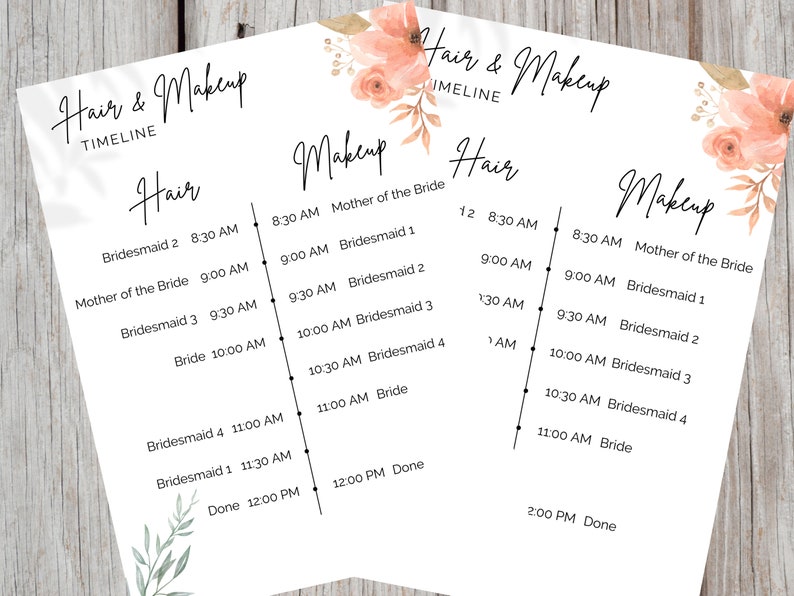 Hair & Makeup
TIMELINE
Hair
Bridesmaid 2 8:30 AM
Mother of the Bride 9:00 AM
Bridesmaid 3 9:30 AM
Bride 10:00 AM
Bridesmaid 4 11:00 AM
Bridesmaid 1 11:30 AM
Done 12:00 PM
Makeup
8:30 AM Mother of the Bride
9:00 AM Bridesmaid 1
9:30 AM Bridesmaid 2
10:00 AM Bridesmaid 3
10:30 AM Bridesmaid 4
11:00 AM Bride
12:00 PM Done
Hair & Makeup
IMELINE
Hair
2 8:30 AM
9:00 AM
:30 AM
AM
Makeup
8:30 AM Mother of the Bride
9:00 AM Bridesmaid 1
9:30 AM Bridesmaid 2
10:00 AM Bridesmaid 3
10:30 AM Bridesmaid 4
11:00 AM Bride
2:00 PM Done